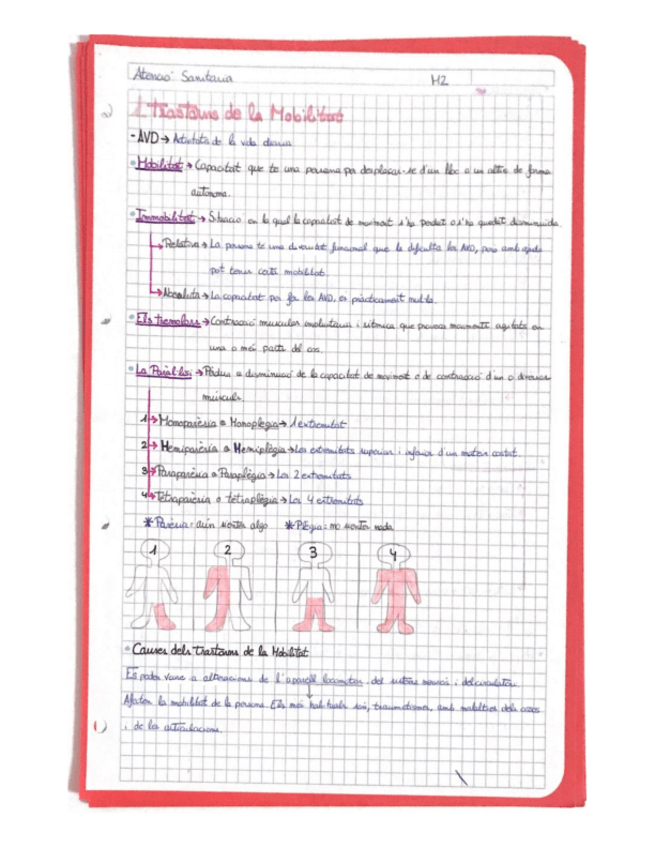 Atenció Sanitaria M2
1 Trastorns de la Mobilitat
- AVD → Activitats de la vida diaria
• Mobilitat → Capacitat que te una persona per desplaçar-se d'un lloc a un altre de forma
autonoma.
• Immobilitat → Situacio en la qual la capacitat de moviment s'ha perdut o s'ha quedat disminuida.
↳ Relativa → La persona te una diversitat funcional que le dificulta les AVD, pero amb ajuda
pot tenir certa mobilitat.
↳ Absoluta → La capacitat per fer les AVD, es pràcticament nul·la.
• Els tremolors → Contracció muscular involuntaria i ritmica que provoca moviments agitats en
una o més parts del cos.
• La Paràl·lisi → Pèrdua o disminució de la capacitat de moviment o de contracció d'un o diversos
músculs.
1 → Monoparèsia o Monoplegia → 1 extremitat
2 → Hemiparèsia o Hemiplègia → Les extremitats superior i inferior d'un mateix costat.
3 → Paraparèsia o Paraplègia → Les 2 extremitats
4 → Tetraparèsia o tetraplègia → Les 4 extremitats
* Parèsia: aún algo * Plègia: no nada.
1 2 3 4
• Causes dels trastorns de la Mobilitat
Es poden a alteracions de l'aparell locomotor, del sistema nerviós i del circulatori.
Afecten la mobilitat de la persona. Els més habituals són, traumatismes, amb malalties dels ossos
i de les articulacions.